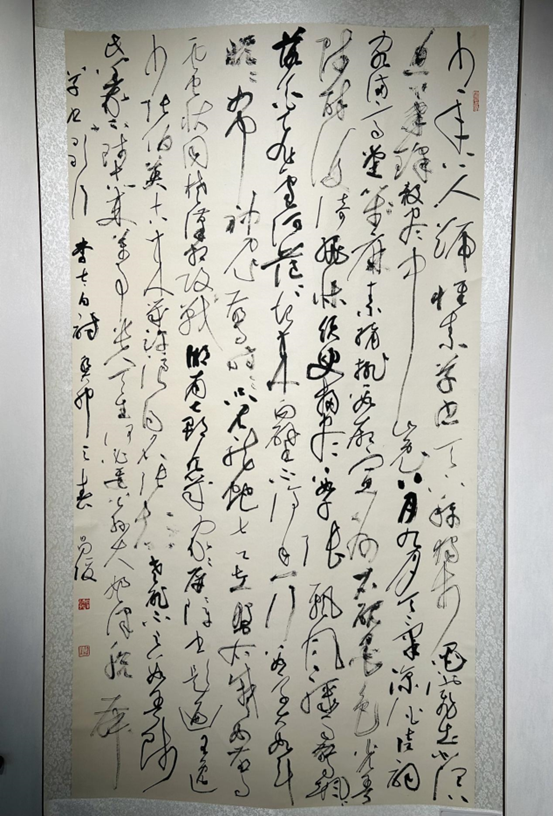 少年上人號懷素草書天下稱獨步墨池飛出北溟
魚筆鋒殺盡中山兔八月九月天氣涼酒徒詞
客滿高堂箋麻素絹排數廂宣州石硯墨色光吾
師醉後倚繩床須臾掃盡數千張飄風驟雨驚颯颯
落花飛雪何茫茫起來向壁不停手一行數字大如斗
恍恍如聞神鬼驚時時只見龍蛇走左盤右蹙如驚
電狀同楚漢相攻戰湖南七郡凡幾家家家屏障書題遍王逸
少張伯英古來幾許浪得名張顛老死不足數我師
此義不師古古來萬事貴天生何必要公孫大娘渾脫舞
草書歌行 李太白詩 癸卯之春